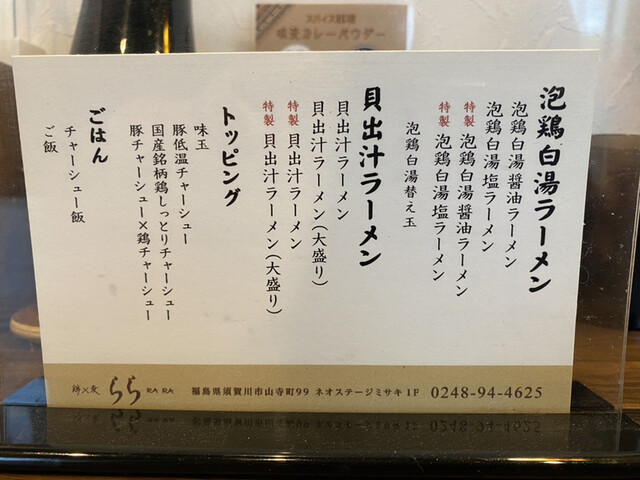 スパイス料理
味麦カレーパウダー
泡鶏白湯ラーメン
泡鶏白湯醤油ラーメン
泡鶏白湯塩ラーメン
特製 泡鶏白湯醤油ラーメン
特製 泡鶏白湯塩ラーメン
泡鶏白湯替え玉
貝出汁ラーメン
貝出汁ラーメン
貝出汁ラーメン(大盛り)
特製 貝出汁ラーメン
特製 貝出汁ラーメン(大盛り)
トッピング
味玉
豚低温チャーシュー
国産銘柄鶏しっとりチャーシュー
豚チャーシュー×鶏チャーシュー
ごはん
チャーシュー飯
ご飯
鶏×麦 らら RA RA 福島県須賀川市山寺町99 ネオステージミサキ1F 0248-94-4625